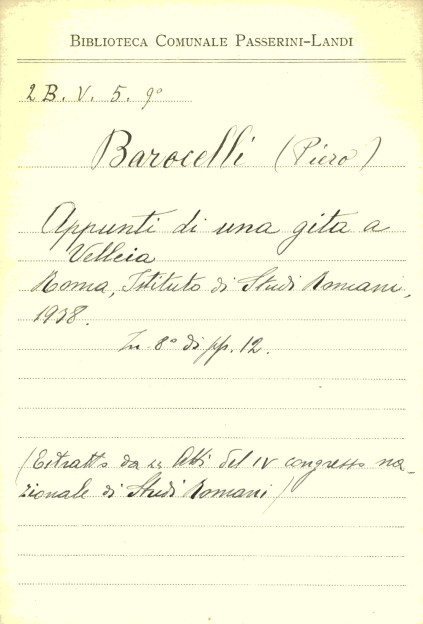 BIBLIOTECA COMUNALE PASSERINI-LANDI
2 B. V. 5. 9°
Barocelli (Piero)
Appunti di una gita a
Velleia
Roma, Istituto di Studi Romani,
1938.
In 8° di pp. 12.
(Estratto da "Atti del IV congresso na-
zionale di Studi Romani)